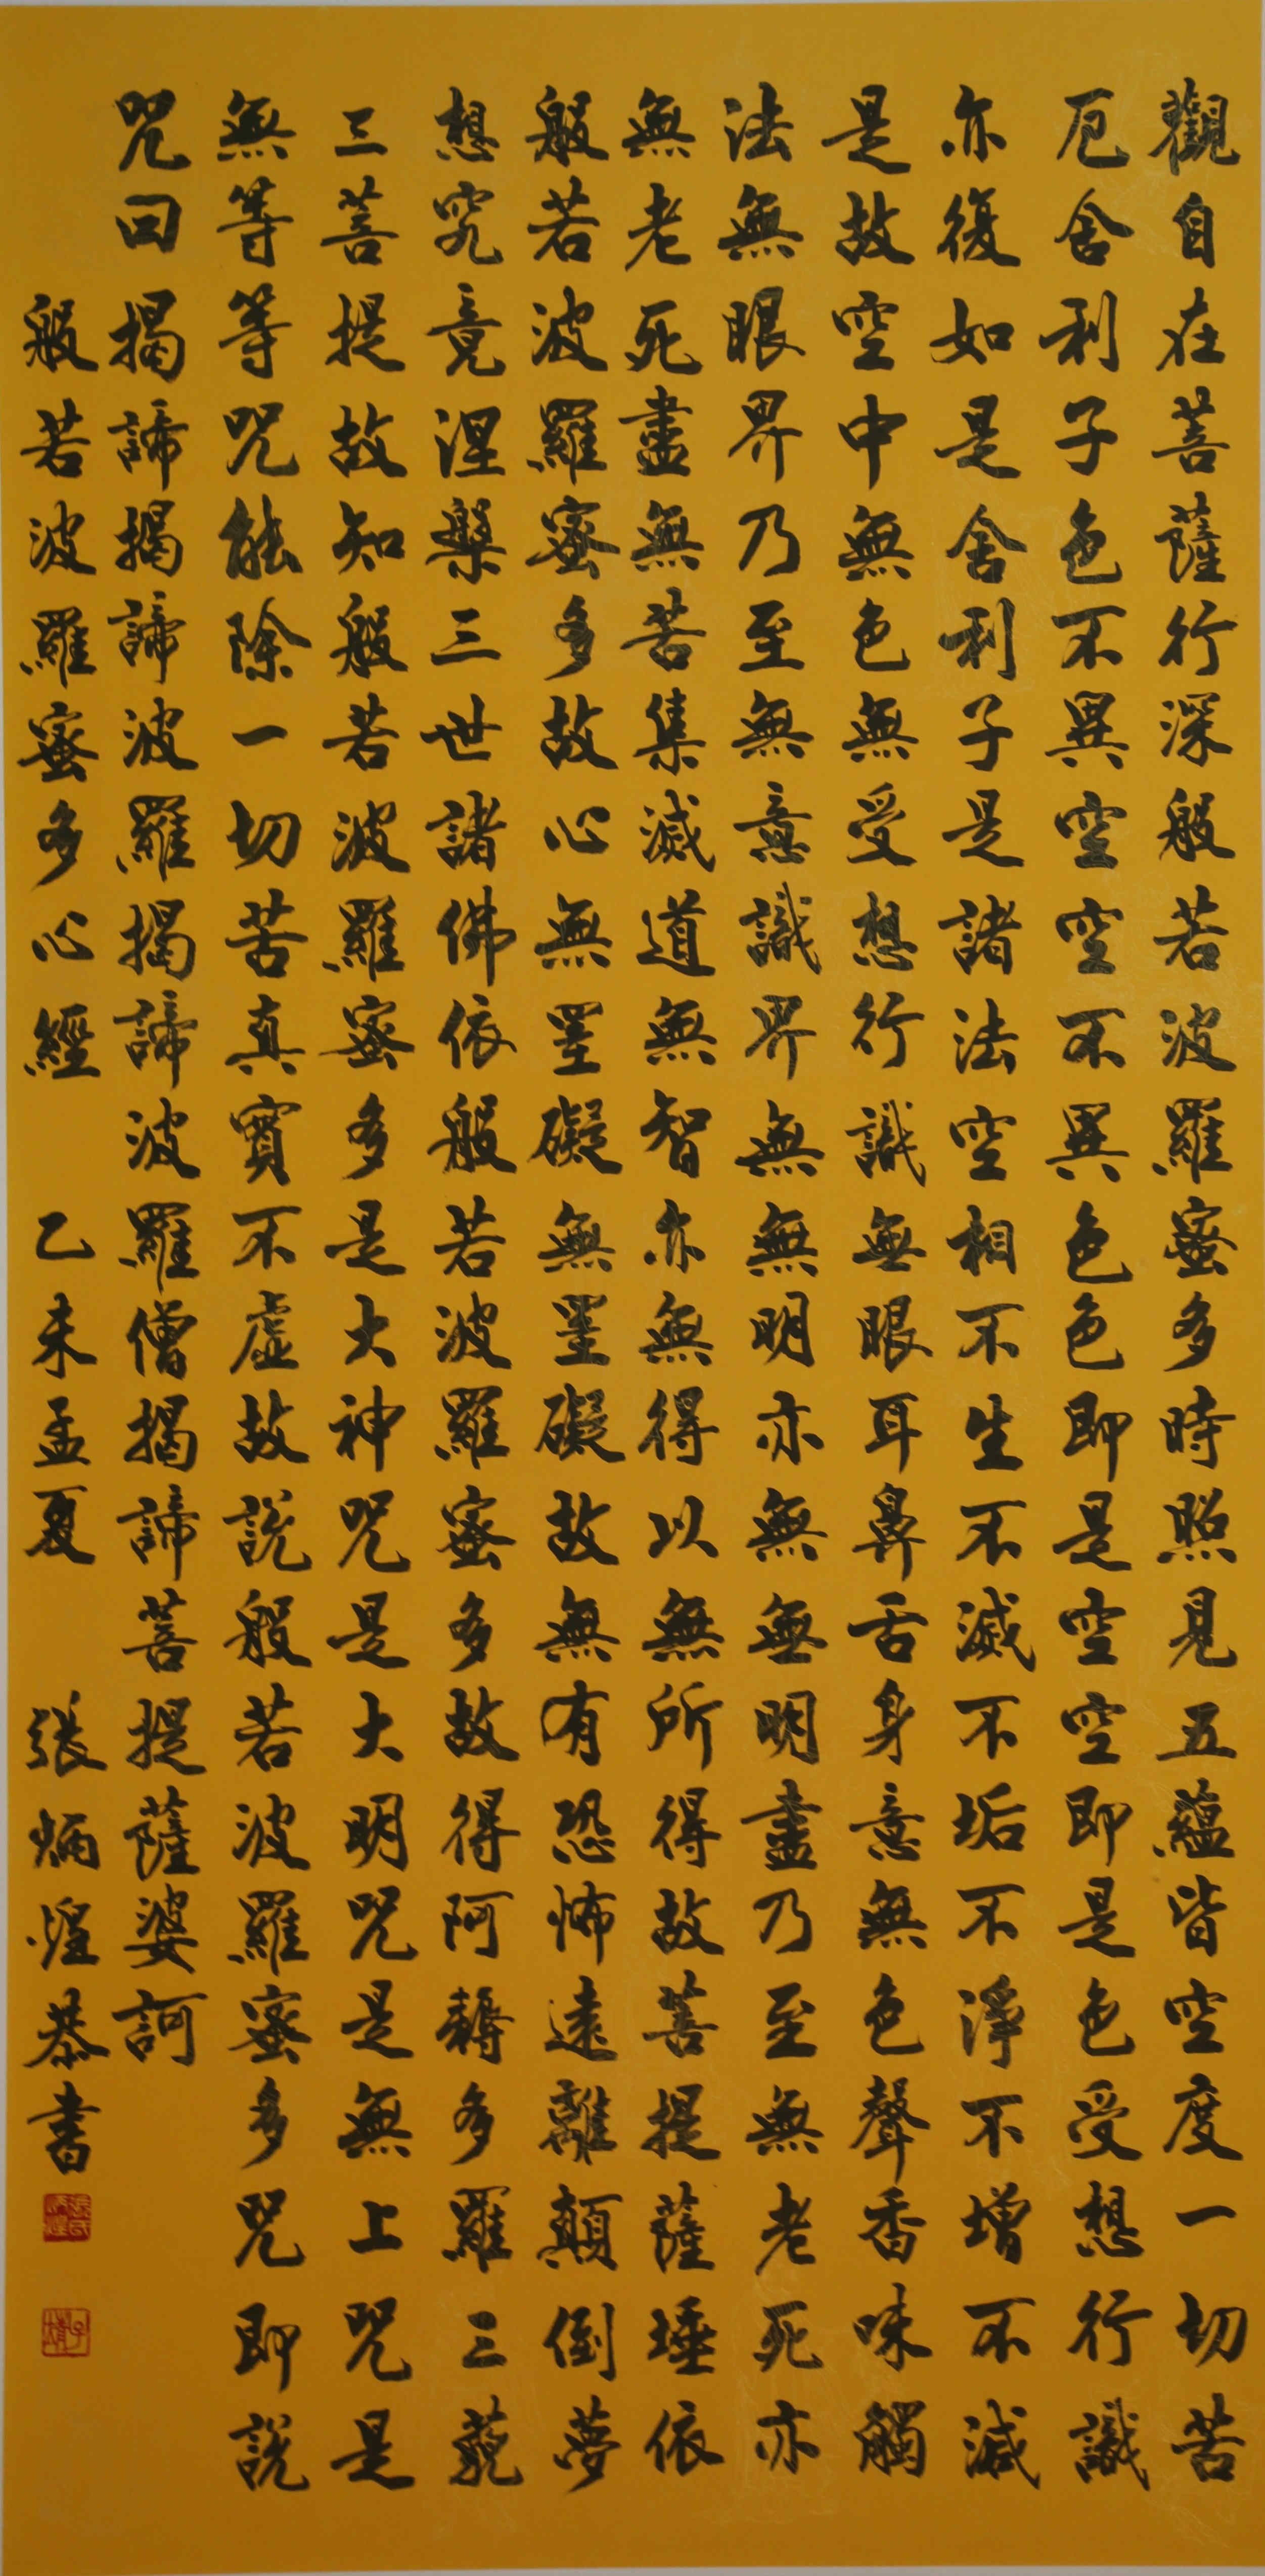 觀自在菩薩行深般若波羅蜜多時照見五蘊皆空度一切苦
厄舍利子色不異空空不異色色即是空空即是色受想行識
亦復如是舍利子是諸法空相不生不滅不垢不淨不增不減
是故空中無色無受想行識無眼耳鼻舌身意無色聲香味觸
法無眼界乃至無意識界無無明亦無無明盡乃至無老死亦
無老死盡無苦集滅道無智亦無得以無所得故菩提薩埵依
般若波羅蜜多故心無罣礙無罣礙故無有恐怖遠離顛倒夢
想究竟涅槃三世諸佛依般若波羅蜜多故得阿耨多羅三藐
三菩提故知般若波羅蜜多是大神咒是大明咒是無上咒是
無等等咒能除一切苦真實不虛故說般若波羅蜜多咒即說
咒曰揭諦揭諦波羅揭諦波羅僧揭諦菩提薩婆訶
般若波羅蜜多心經 乙未孟夏 張炳煌恭書